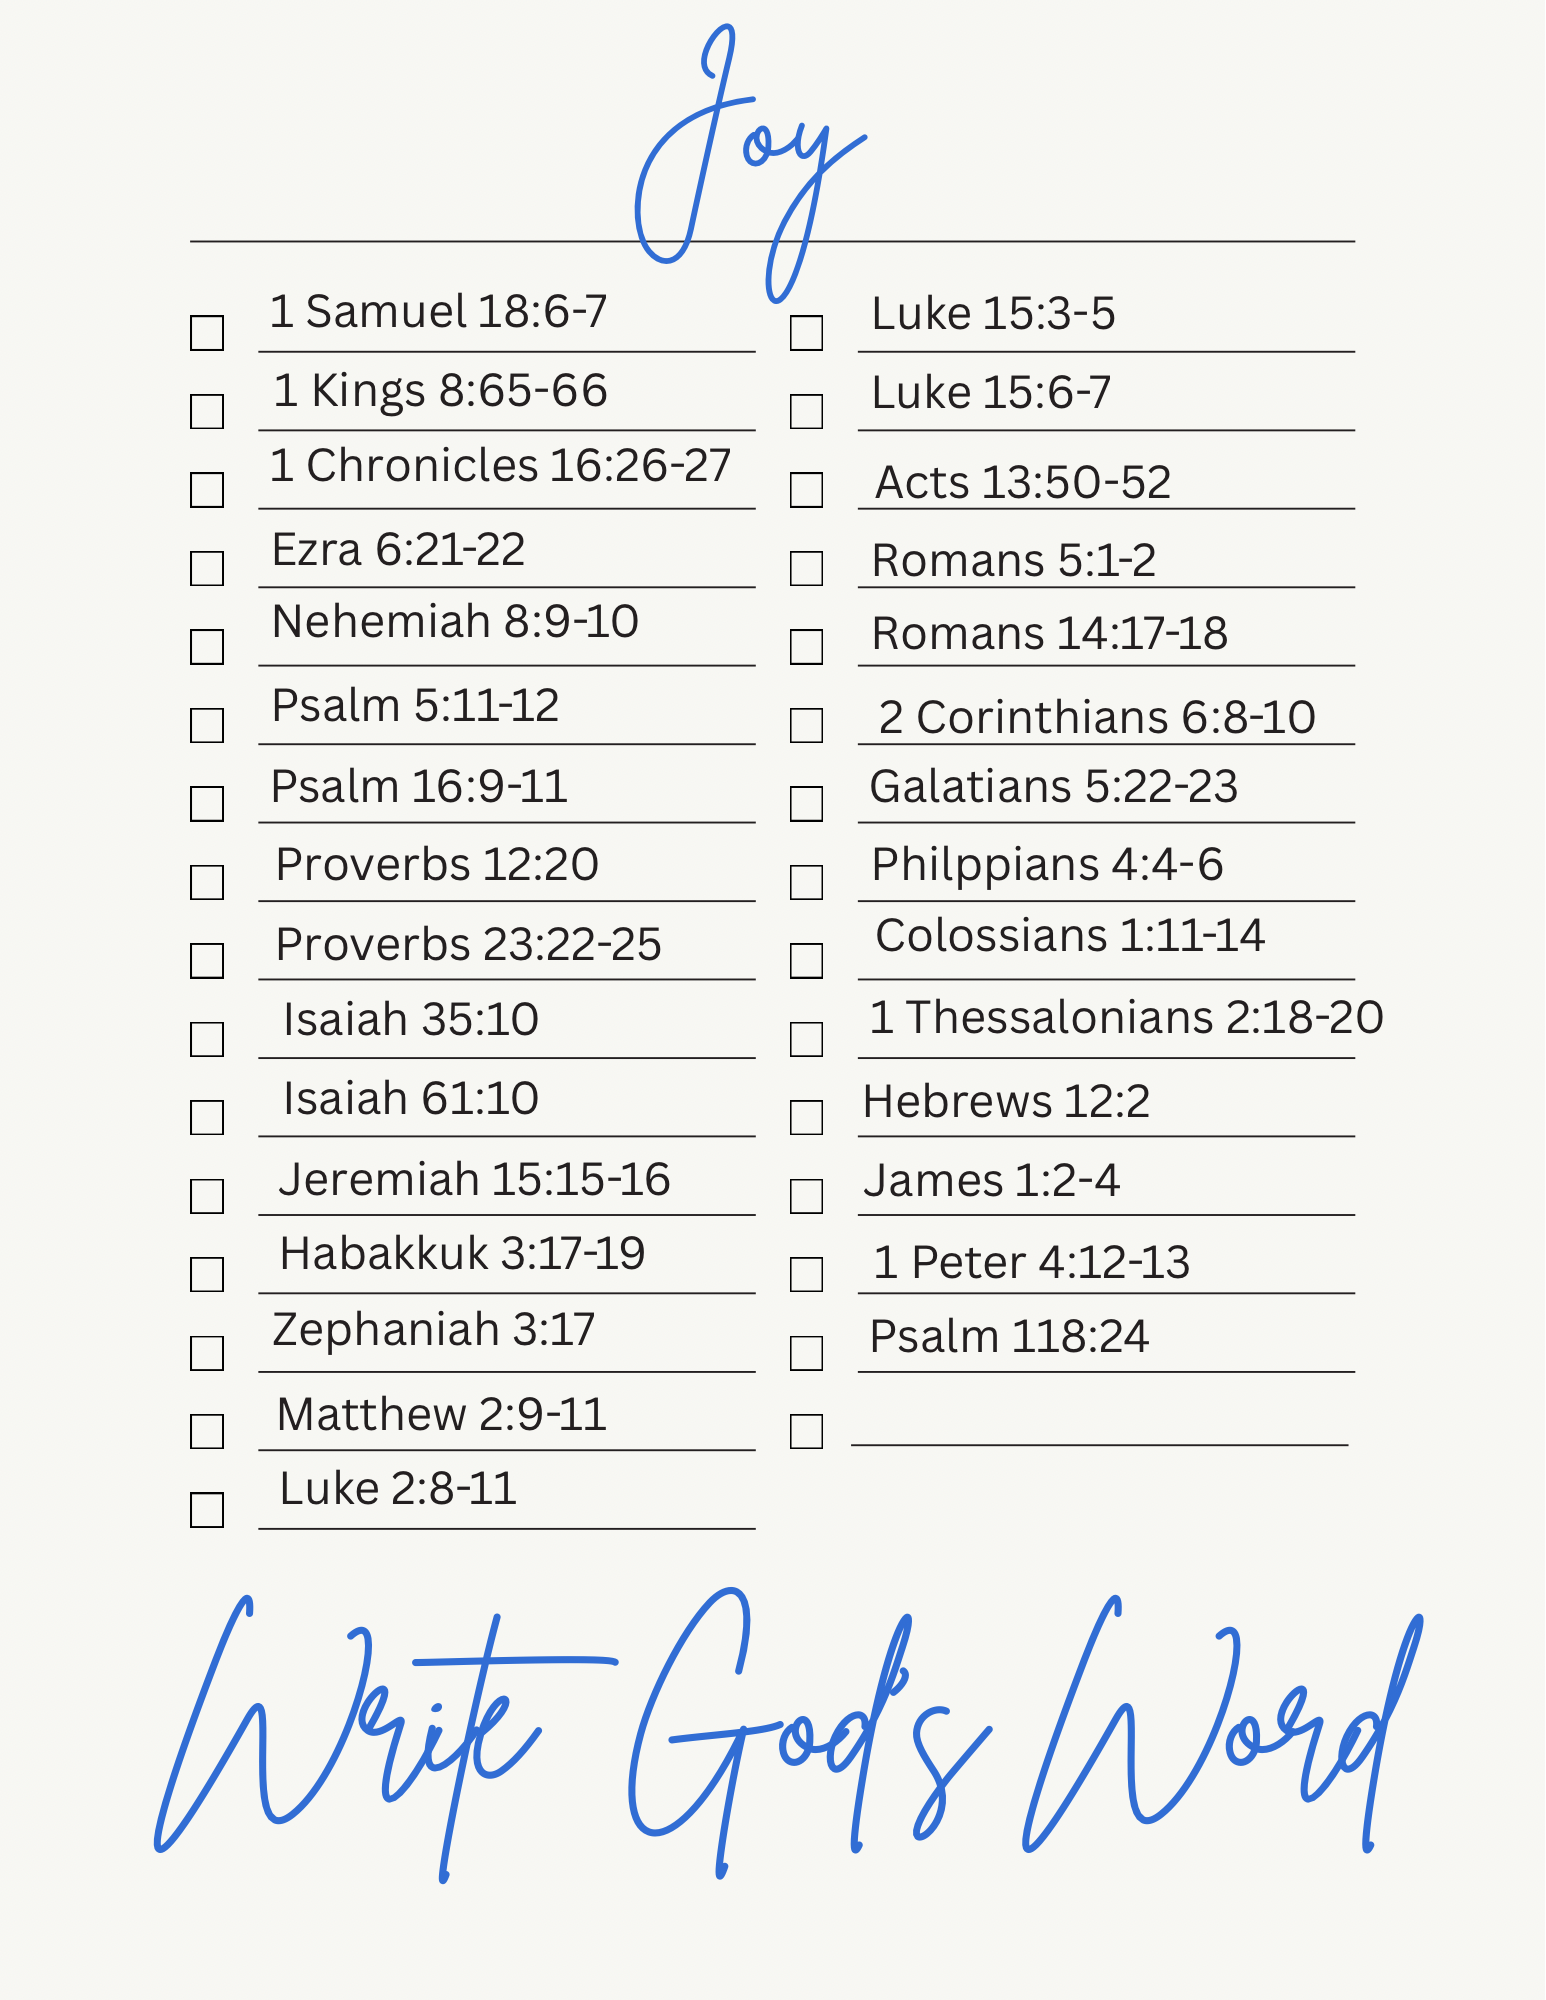 Joy
1 Samuel 18:6-7
1 Kings 8:65-66
1 Chronicles 16:26-27
Ezra 6:21-22
Nehemiah 8:9-10
Psalm 5:11-12
Psalm 16:9-11
Proverbs 12:20
Proverbs 23:22-25
Isaiah 35:10
Isaiah 61:10
Jeremiah 15:15-16
Habakkuk 3:17-19
Zephaniah 3:17
Matthew 2:9-11
Luke 2:8-11
Luke 15:3-5
Luke 15:6-7
Acts 13:50-52
Romans 5:1-2
Romans 14:17-18
2 Corinthians 6:8-10
Galatians 5:22-23
Philppians 4:4-6
Colossians 1:11-14
1 Thessalonians 2:18-20
Hebrews 12:2
James 1:2-4
1 Peter 4:12-13
Psalm 118:24
Write God's Word